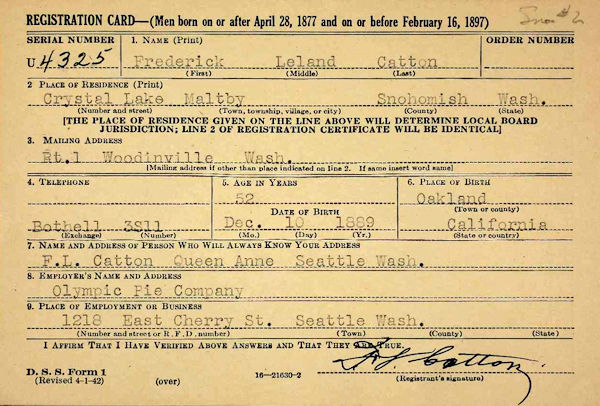 REGISTRATION CARD—(Men born on or after April 28, 1877 and on or before February 16, 1897)
SERIAL NUMBER 1. NAME (Print) ORDER NUMBER
U 4325 Frederick Leland Catton
(First) (Middle) (Last)
2 PLACE OF RESIDENCE (Print)
Crystal Lake Maltby Snohomish Wash.
(Number and street) (Town, township, village, or city) (County) (State)
[THE PLACE OF RESIDENCE GIVEN ON THE LINE ABOVE WILL DETERMINE LOCAL BOARD
JURISDICTION; LINE 2 OF REGISTRATION CERTIFICATE WILL BE IDENTICAL]
3. MAILING ADDRESS
Rt.1 Woodinville Wash.
[Mailing address if other than place indicated on line 2. If same insert word same]
4. TELEPHONE 5. AGE IN YEARS 6. PLACE OF BIRTH
52 Oakland
DATE OF BIRTH (Town or county)
Bothell 3S11 Dec. 10 1889 California
(Exchange) (Number) (Mo.) (Day) (Yr.) (State or country)
7. NAME AND ADDRESS OF PERSON WHO WILL ALWAYS KNOW YOUR ADDRESS
F.L. Catton Queen Anne Seattle Wash.
8. EMPLOYER'S NAME AND ADDRESS
Olympic Pie Company
9. PLACE OF EMPLOYMENT OR BUSINESS
1218 East Cherry St. Seattle Wash.
(Number and street or R. F. D. number) (Town) (County) (State)
I AFFIRM THAT I HAVE VERIFIED ABOVE ANSWERS AND THAT THEY ARE TRUE.
F L Catton
D. S. S. Form 1
(Revised 4-1-42) (over) 16—21630-2 (Registrant's signature)